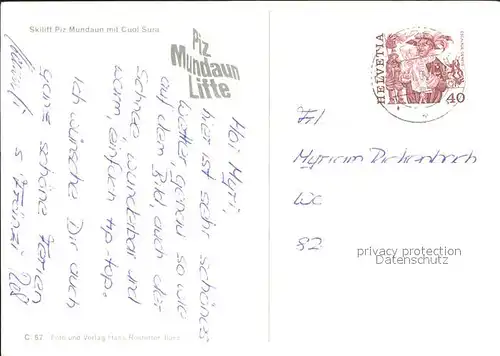 Skilift Piz-Mundaun mit Cuol Sura
Piz
Mundaun
Lifte
HELVETIA
40
Hoi Myri,
hier ist sehr schönes
Wetter, genau so wie
auf dem Bild, auch der
Schnee wunderbar und
warm, einfach tip-top.
Ich wünsche Dir auch
ganz schöne Ferien
s'
Frl
Myriam
82
privacy protection
Datenschutz
C. 57 Foto und Verlag Hans